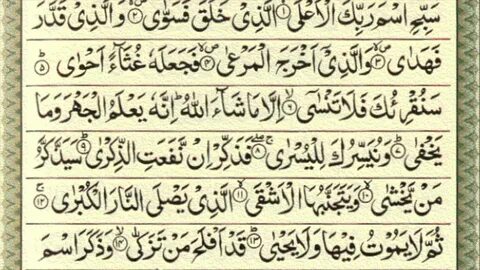 سَبِّحِ اسْمَ رَبِّكَ الْاَعْلَى ۙ﴿۱﴾ الَّذِیْ خَلَقَ فَسَوّٰى ۪ۙ﴿۲﴾ وَالَّذِیْ قَدَّرَ
فَهَدٰى ۪ۙ﴿۳﴾ وَالَّذِیْۤ اَخْرَجَ الْمَرْعٰى ۪ۙ﴿۴﴾ فَجَعَلَهٗ غُثَآءً اَحْوٰى ؕ﴿۵﴾
سَنُقْرِئُكَ فَلَا تَنْسٰۤى ۙ﴿۶﴾ اِلَّا مَا شَآءَ اللّٰهُ ؕ اِنَّهٗ یَعْلَمُ الْجَهْرَ وَمَا
یَخْفٰى ؕ﴿۷﴾ وَنُیَسِّرُكَ لِلْیُسْرٰى ۚۖ﴿۸﴾ فَذَكِّرْ اِنْ نَّفَعَتِ الذِّكْرٰى ؕ﴿۹﴾ سَیَذَّكَّرُ
مَنْ یَّخْشٰى ۙ﴿۱۰﴾ وَیَتَجَنَّبُهَا الْاَشْقَى ۙ﴿۱۱﴾ الَّذِیْ یَصْلَى النَّارَ الْكُبْرٰى ۚ﴿۱۲﴾
ثُمَّ لَا یَمُوْتُ فِیْهَا وَلَا یَحْیٰى ؕ﴿۱۳﴾ قَدْ اَفْلَحَ مَنْ تَزَكّٰى ۙ﴿۱۴﴾ وَذَكَرَ اسْمَ